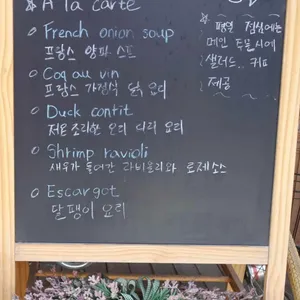 A la carte
French onion soup
프랑스 양파 스프
Coq au vin
프랑스 가정식 닭 요리
Duck contit
저온 조리한 오리 다리 요리
Shrimp ravioli
새우가 들어간 라비올리와 로제소스
Escargot
달팽이 요리
평일 점심에는
메인 주문시에
샐러드.. 커피
제공